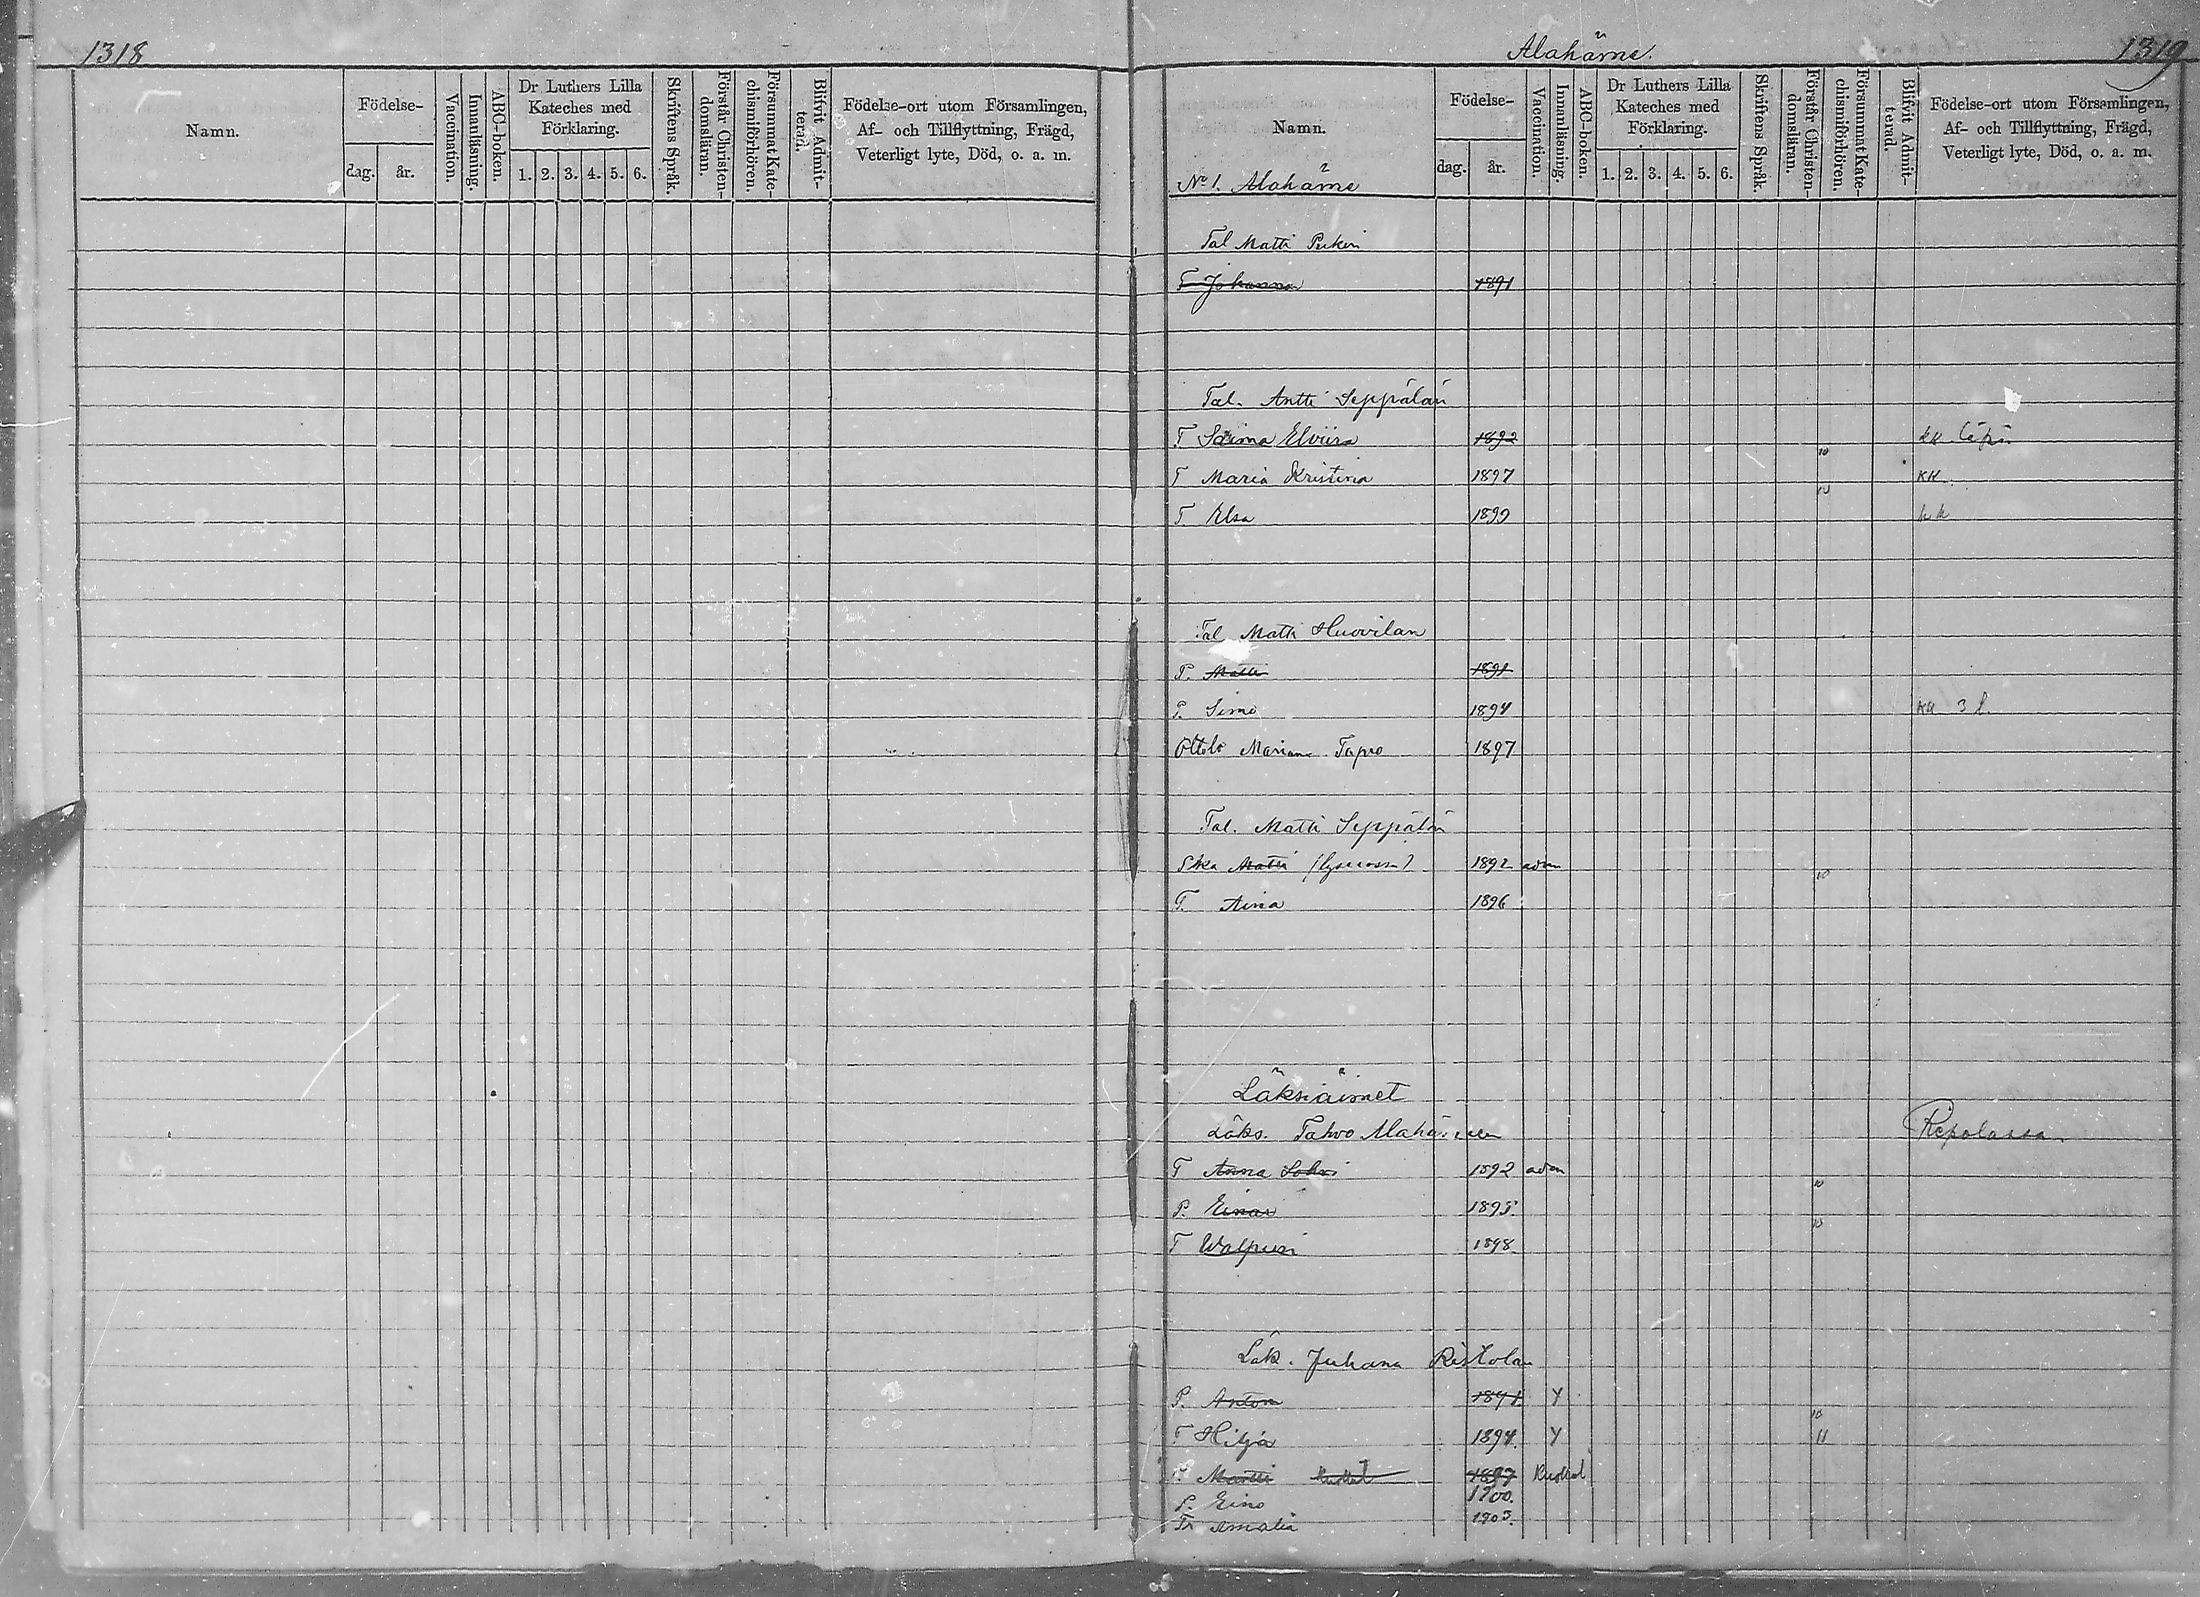 1318
Namn.
Födelse-
dag. år.
Vaccination.
Innanläsning.
ABC-boken.
Dr Luthers Lilla
Kateches med
Förklaring.
1. 2. 3. 4. 5. 6.
Skriftens Språk.
Förstår Christen-
domsläran.
Försummat Kate-
chismiförhören.
Blifvit Admit-
terad.
Födelse-ort utom Församlingen,
Af- och Tillflyttning, Frägd,
Veterligt lyte, Död, o. a. m.
Alahärne.
1319
Namn.
No 1. Alahärne
Födelse-
dag. år.
Vaccination.
Innanläsning.
ABC-boken.
Dr Luthers Lilla
Kateches med
Förklaring.
1. 2. 3. 4. 5. 6.
Skriftens Språk.
Förstår Christen-
domsläran.
Försummat Kate-
chismiförhören.
Blifvit Admit-
terad.
Födelse-ort utom Församlingen,
Af- och Tillflyttning, Frägd,
Veterligt lyte, Död, o. a. m.
Tal Matti
T Johanna 1891
Tal. Antti Seppälän
T Saima Elviira 1892 kk
10
T Maria Kristina 1897 KK
10
T Elsa 1899 kk
Tal Matti Huovilan
P. Matti 1891
P. Simo 1894 KK 3 l.
Ottolo Mariana Tapio 1897
Tal. Matti Seppälän
Matti 1892 adm
10
T. Aina 1896
Läksiäimet
Läks. Tahvo Alahärneen Repolassa.
T Anna Sohvi 1892 adm
10
P. Einar 1895.
10
T Walpuri 1898
Läk. Juhana Ristolan
P. Anton 1891 Y
10
T Hilja 1894. Y 11
P. Martti Kuollut 1897 Kuollut
P. Eino 1900.
Tr Amalia 1903.